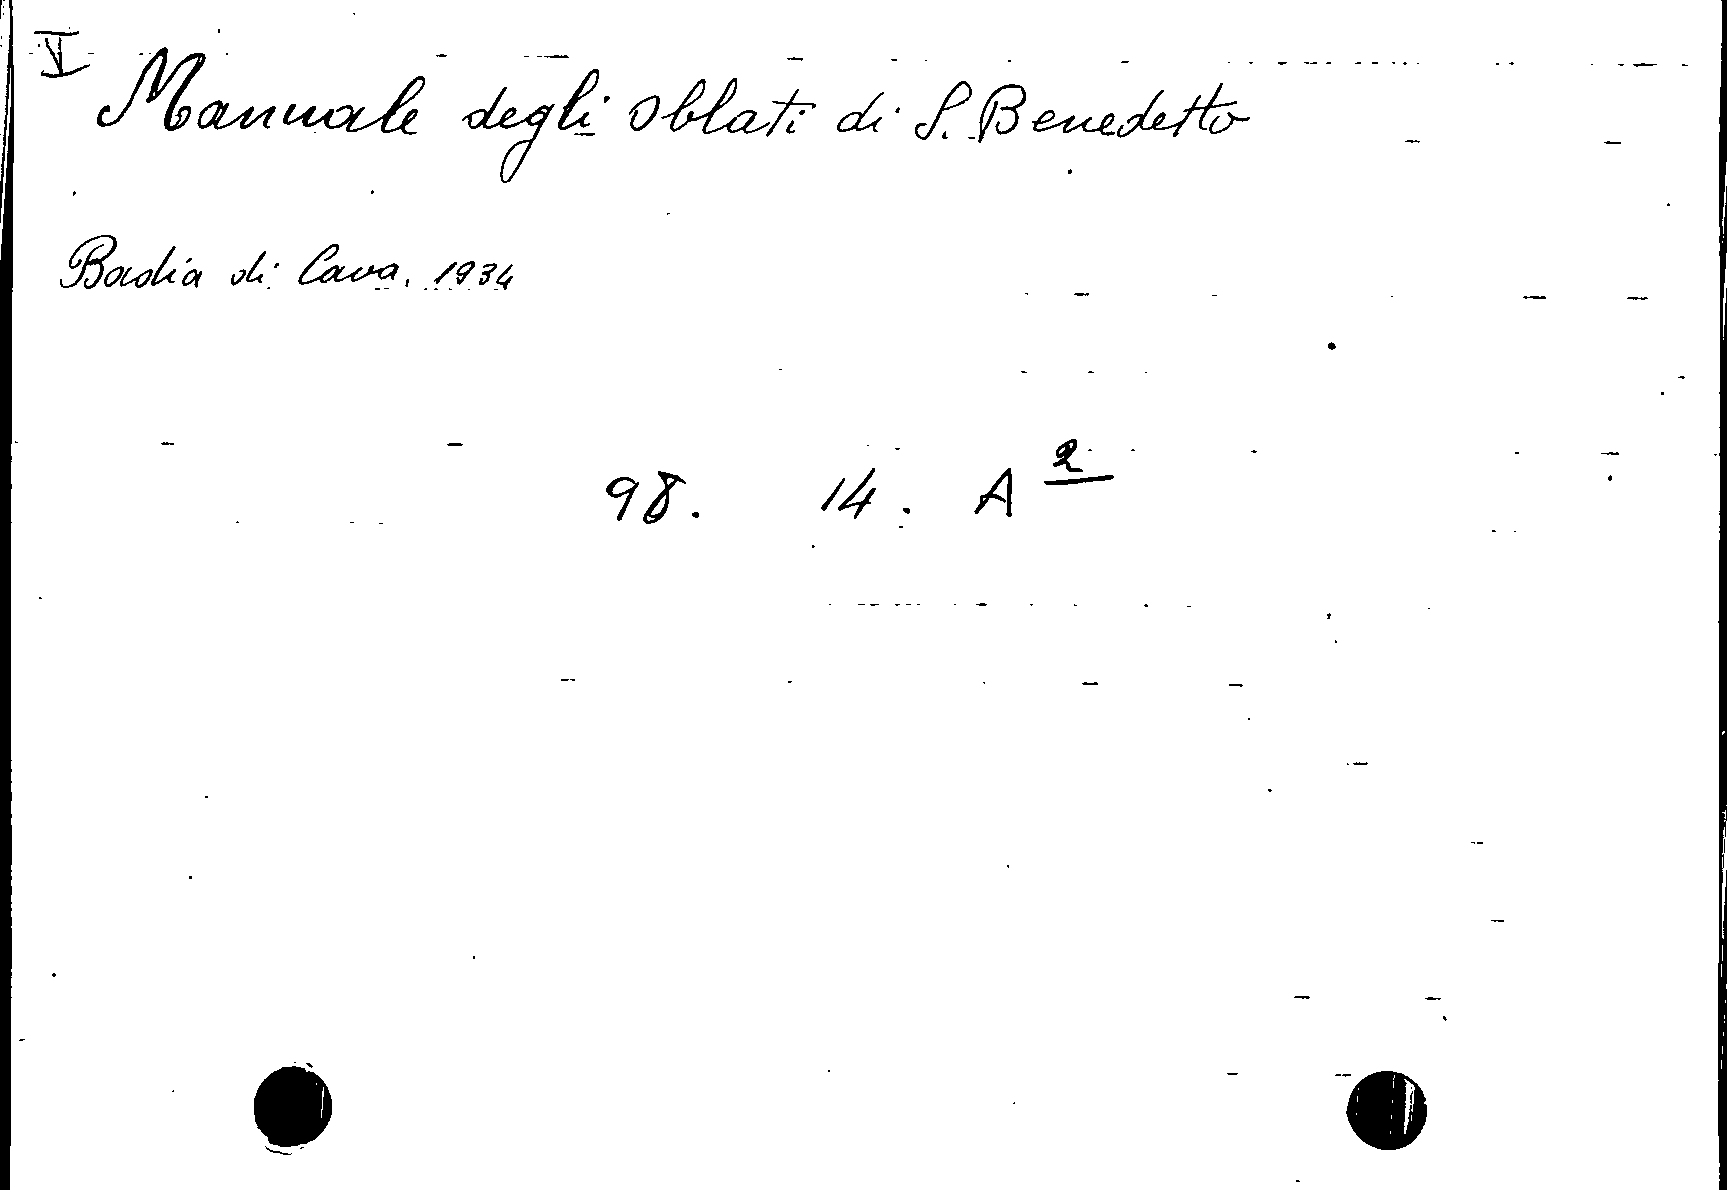 V Manuale degli Oblati di S. Benedetto
Badia di Cava. 1934
98. 14. A 2